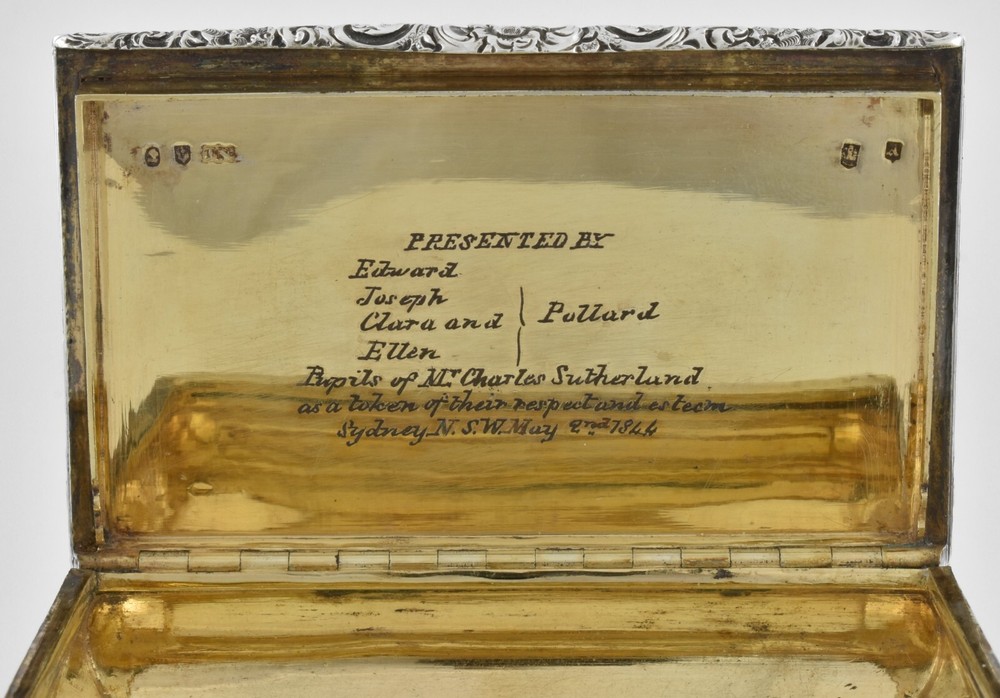 PRESENTED BY
Edward
Joseph
Clara and
Ellen
Pollard
Pupils of Mr Charles Sutherland
as a token of their respect and esteem
Sydney N. S. W. May 2nd 1844